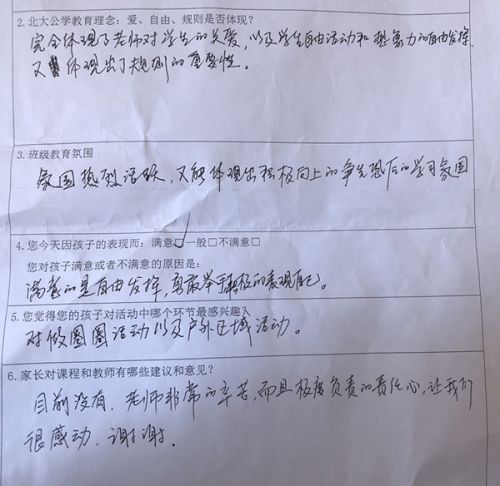 2. 北大公学教育理念：爱、自由、规则是否体现？
完全体现了老师对学生的关爱，以及学生自由活动和想象力的自由发挥
又体现出了规则的重要性。
3. 班级教育氛围
氛围热烈活跃，又能体现出积极向上的争先恐后的学习氛围
4. 您今天因孩子的表现而：满意☑一般□不满意□
您对孩子满意或者不满意的原因是：
满意的是自由发挥，勇敢举手积极的表现自己。
5. 您觉得您的孩子对活动中哪个环节最感兴趣？
对做圈圈活动以及户外区域活动。
6. 家长对课程和教师有哪些建议和意见？
目前没有，老师非常的辛苦，而且极度负责的责任心，让我们
很感动．谢谢．